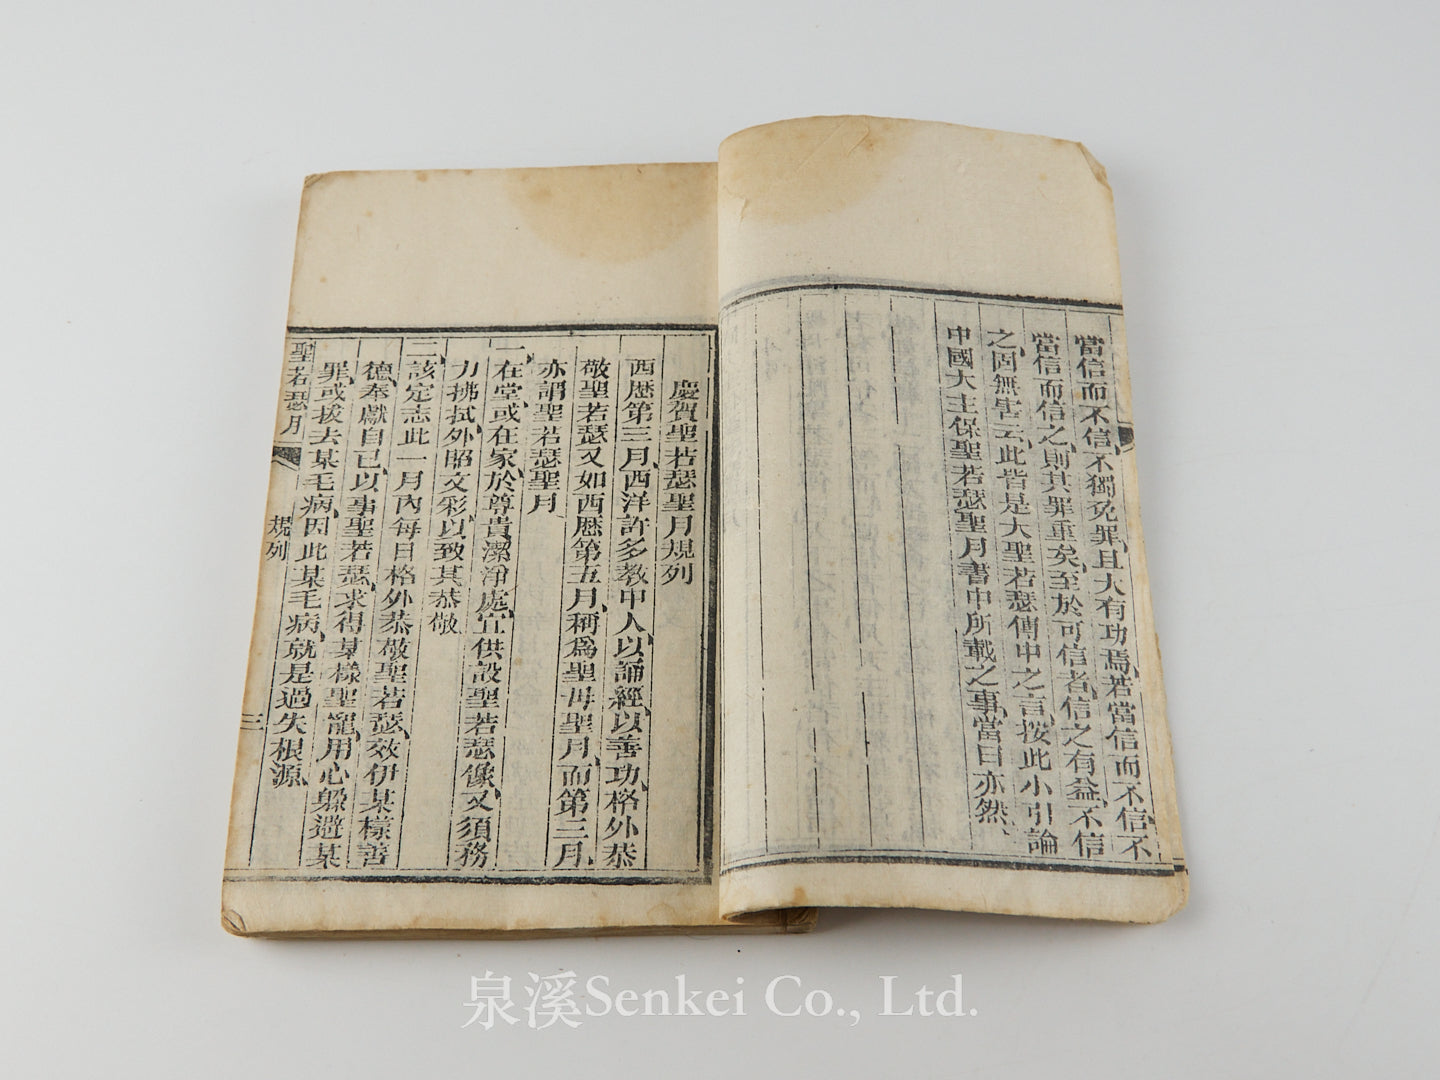 當信而不信、不獨免罪、且大有功焉、若當信而不信、不
當信而信之、則其罪重矣、至於可信者、信之有益、不信
之固無害云、此皆是大聖若瑟傳中之言、按此小引論
中國大主保聖若瑟聖月書中所載之事、當日亦然、
慶賀聖若瑟聖月規列
西歴第三月、西洋許多教中人、以誦經、以善功、格外恭
敬聖若瑟、又如西歴第五月、稱爲聖母聖月、而第三月、
亦謂聖若瑟聖月
一、在堂、或在家、於尊貴潔凈處、宜供設聖若瑟像、又須務
力拂拭、外昭文彩、以致其恭敬
二、該定志此一月內、每日格外恭敬聖若瑟、效伊某樣善
德、奉獻自己、以事聖若瑟、求得某樣聖寵、用心躲避某
罪、或拔去某毛病、因此某毛病、就是過失根源、
聖若瑟月
規列
三
泉溪Senkei Co., Ltd.